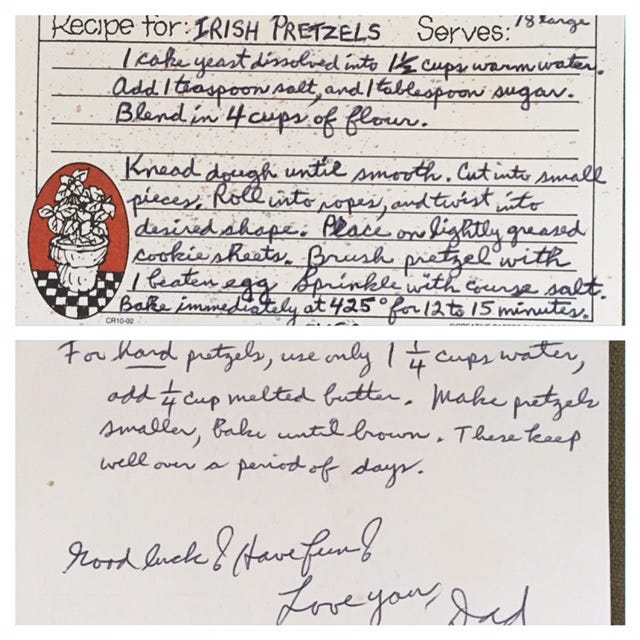 Recipe for: IRISH PRETZELS Serves: 18 large
1 cake yeast dissolved into 1½ cups warm water.
Add 1 teaspoon salt, and 1 tablespoon sugar.
Blend in 4 cups of flour.
Knead dough until smooth. Cut into small
pieces. Roll into ropes, and twist into
desired shape. Place on lightly greased
cookie sheets. Brush pretzel with
1 beaten egg Sprinkle with course salt.
Bake immediately at 425° for 12 to 15 minutes.
CR10-92
For hard pretzels, use only 1 1/4 cups water,
add 1/4 cup melted butter. Make pretzels
smaller, Bake until brown. These keep
well over a period of days.
Good luck! Have fun!
Love you,
Dad